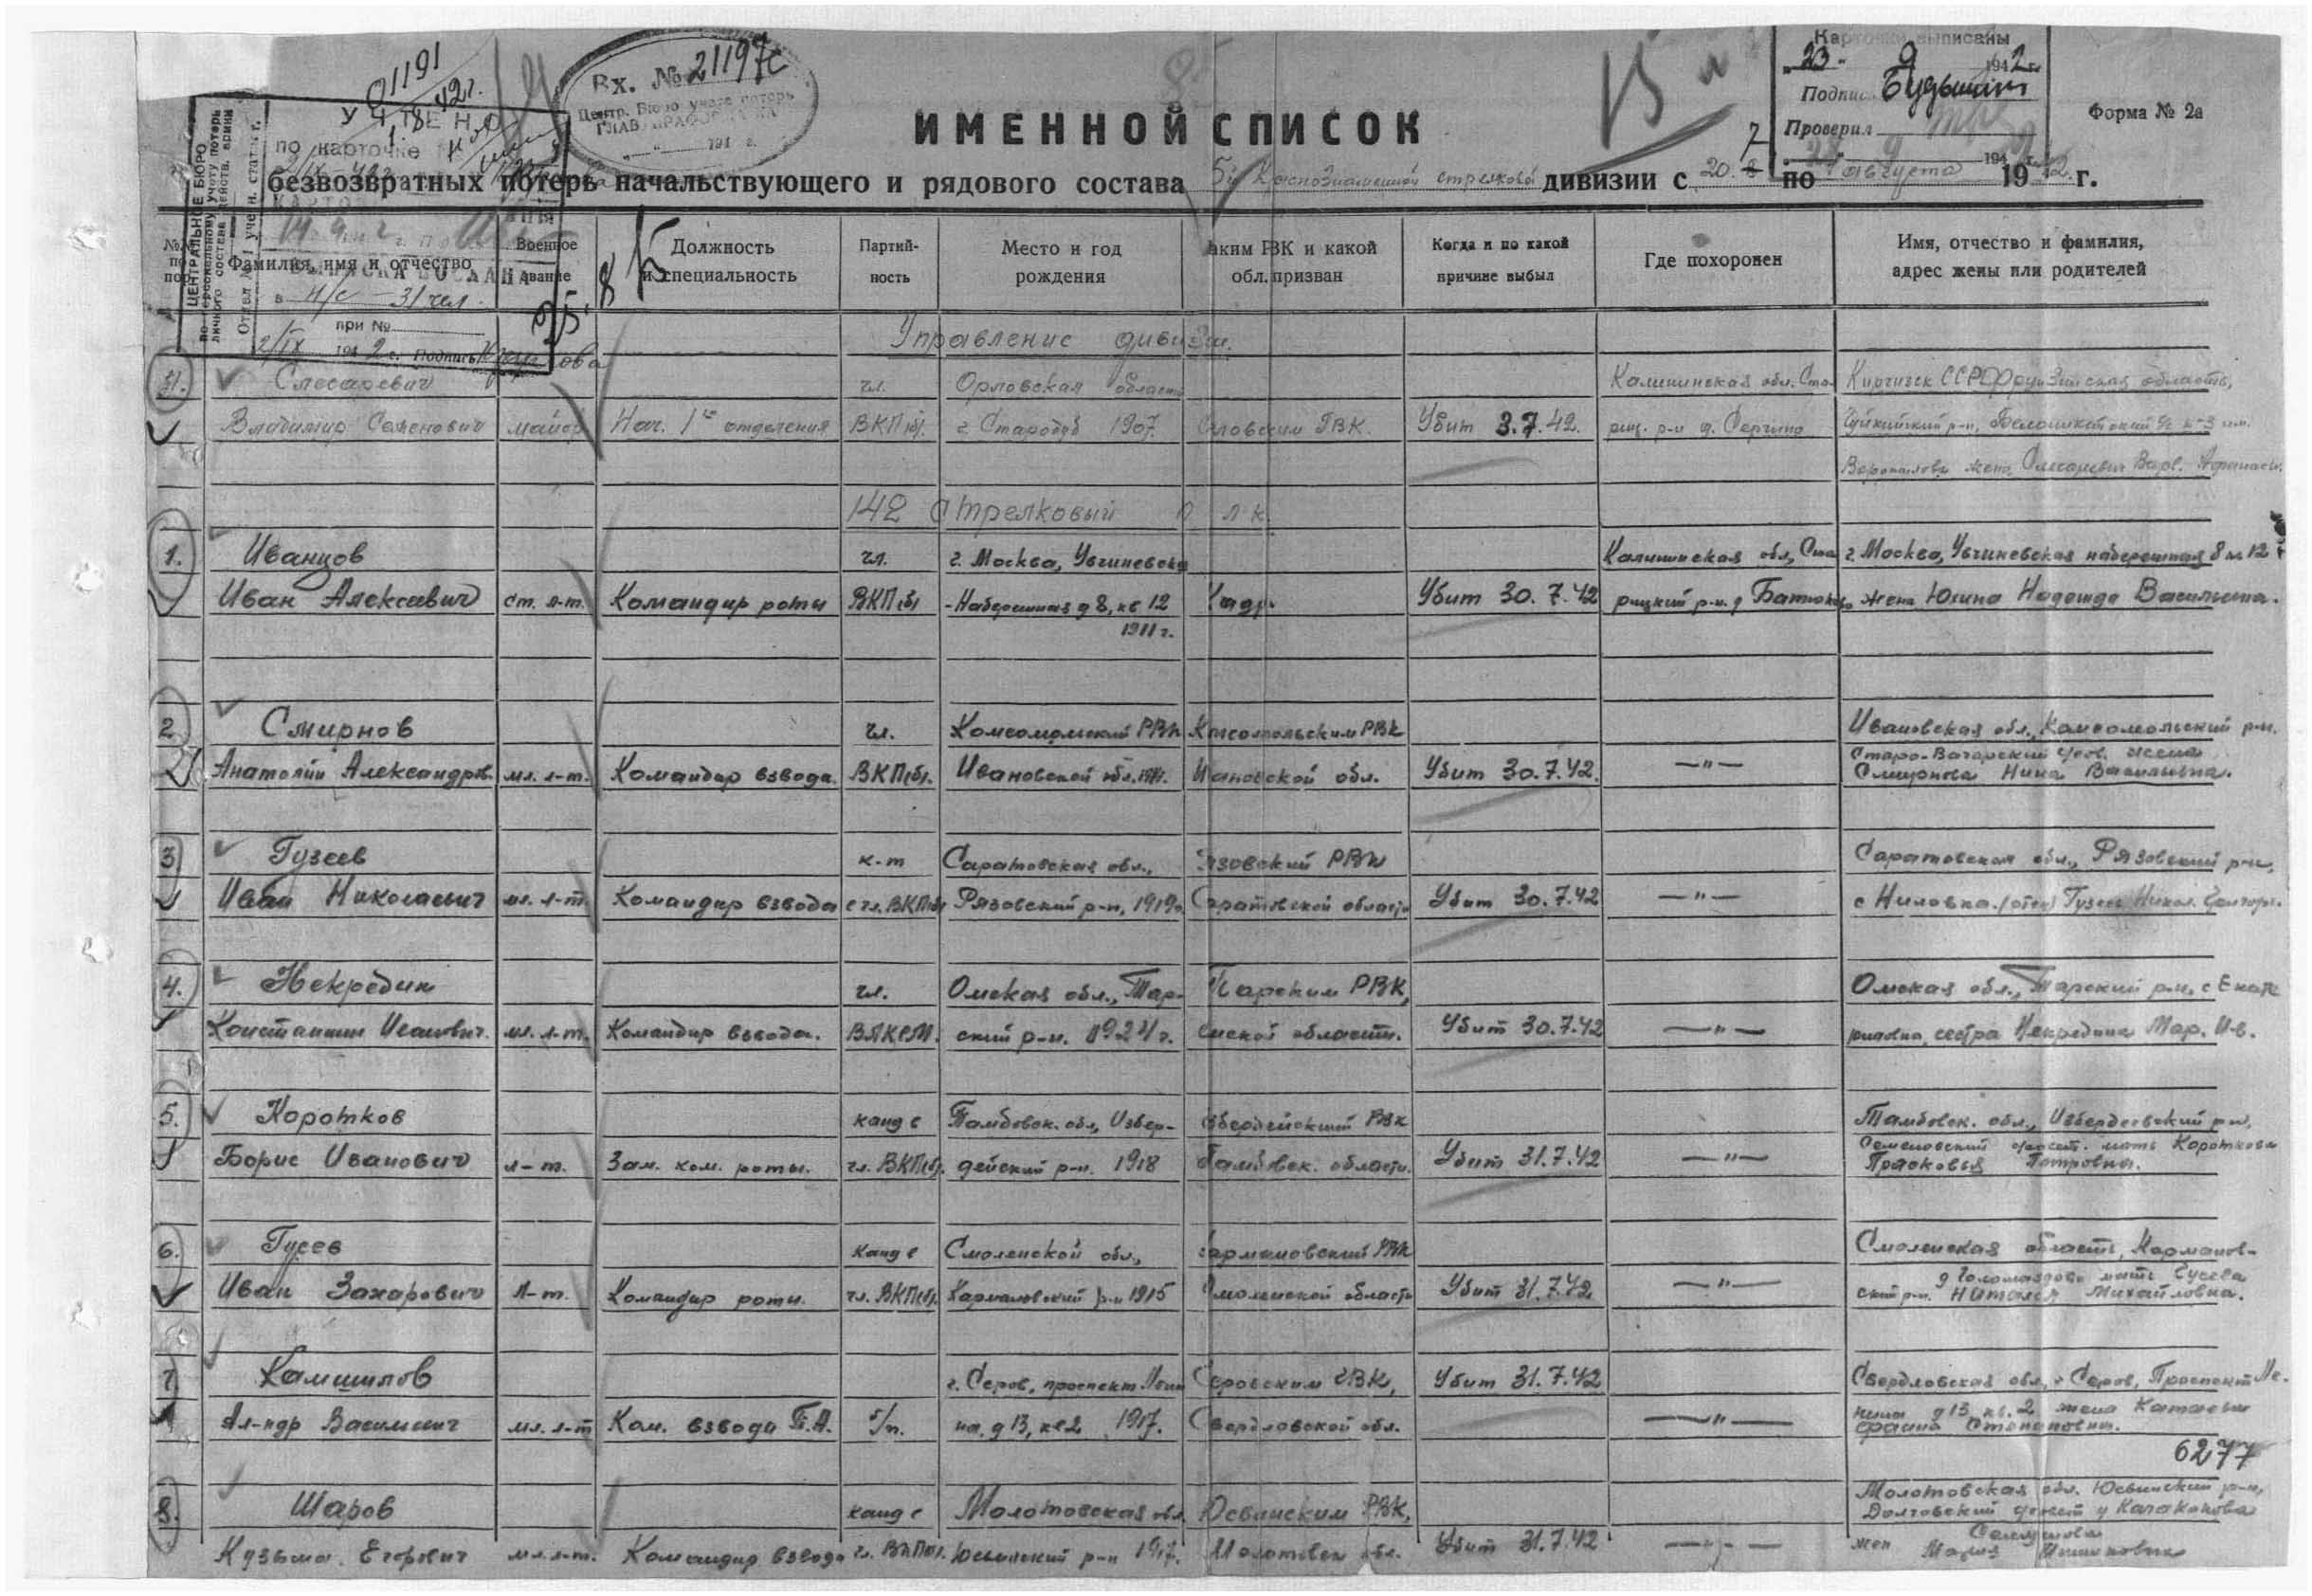 01191
1.8.42г.
УЧТЕНО
по карточке
Вх. № 21197с
Центр. Бюро учета потерь
191 г.
ЦЕНТРАЛЬНОЕ БЮРО
по персональному учету потерь
личного состава действ. армии
в н/с 31 чел.
при №
2/IX 1942 г. Подпись
15
Карточки выписаны
"23" 9 1942 г.
Подпись
Проверил
Форма № 2а
ИМЕННОЙ СПИСОК
безвозвратных потерь начальствующего и рядового состава 5й Краснознаменной стрелковой дивизии с 20.7 по августа 1942 г.
№№ по пор.
Фамилия, имя и отчество
Военное звание
Должность и специальность
Партий-ность
Место и год рождения
Каким РВК и какой обл. призван
Когда и по какой причине выбыл
Где похоронен
Имя, отчество и фамилия, адрес жены или родителей
Управление дивизии.
31. Слесаревич чл. Орловская область Калининская обл. Ста-
Владимир Семенович майор Нач. 1го отделения ВКП(б). г. Стародуб 1907. Орловским ГВК. Убит 3.7.42. риц. р-н д. Сергино
142 Стрелковый полк.
1. Иванцов чл. г. Москва, Калининская обл., Ста г. Москва, набережная 8 кв 12
Иван Алексеевич ст. л-т. Командир роты ВКП(б) -Набережная д 8, кв 12 Кадр. Убит 30.7.42 рицкий р-н. д жена Юлина Надежда Васильевна.
1911 г.
2 Смирнов чл. Комсомольский РВК Комсомольским РВК Ивановская обл., Комсомольский р-н.
Анатолий Александров. мл. л-т. Командир взвода. ВКП(б). Ивановской обл. Ивановской обл. Убит 30.7.42. —"— Смирнова Нина Васильевна.
3 Гузеев к-т Саратовская обл., Рязовский РВК Саратовская обл., Рязовский р-н,
Иван Николаевич мл. л-т. Командир взвода в чл. ВКП(б) Рязовский р-н, 1919г. Саратовской области Убит 30.7.42 —"— с Ниловка. (отец) Гузеев Никол. Григорь.
4. Некредин чл. Омская обл., Тар- Тарским РВК, Омская обл., Тарский р-н, с Екате
Константин Иванович. мл. л-т. Командир взвода. ВЛКСМ. ский р-н. 1924 г. Омской области. Убит 30.7.42 —"— риновка, сестра Некредина Мар. Ив.
5. Коротков канд в Тамбовск. обл., Избер- Избердейский РВК Тамбовск. обл., Избердеевский р-н,
Борис Иванович л-т. Зам. ком. роты. чл. ВКП(б). дейский р-н. 1918 Тамбовск. области. Убит 31.7.42 —"— Семеновский с/совет. мать Короткова
Прасковья Петровна.
6. Гусев канд в Смоленской обл., Кармановский РВК Смоленская область, Карманов-
Иван Захарович л-т. Командир роты. чл. ВКП(б). Кармановский р-н 1915 Смоленской области Убит 31.7.42 —"— ский р-н. мать Гусева
Наталья Михайловна.
7 Камшилов г. Серов, проспект Лени Серовским ГВК, Убит 31.7.42 Свердловская обл., г Серов, Проспект Ле-
Ал-ндр Васильевич мл. л-т Ком. взвода б/п. на, д 13, кв 2 1917. Свердловской обл. —"— нина д 13 кв. 2 жена
Степановна.
6277
8. Шаров канд в Молотовская обл. Юсвинским РВК, Молотовская обл. Юсвинский р-н,
Кузьма Егорович мл. л-т. Командир взвода чл. ВКП(б). Юсьвинский р-н 1917. Молотовск обл. Убит 31.7.42 —"— жен Мария